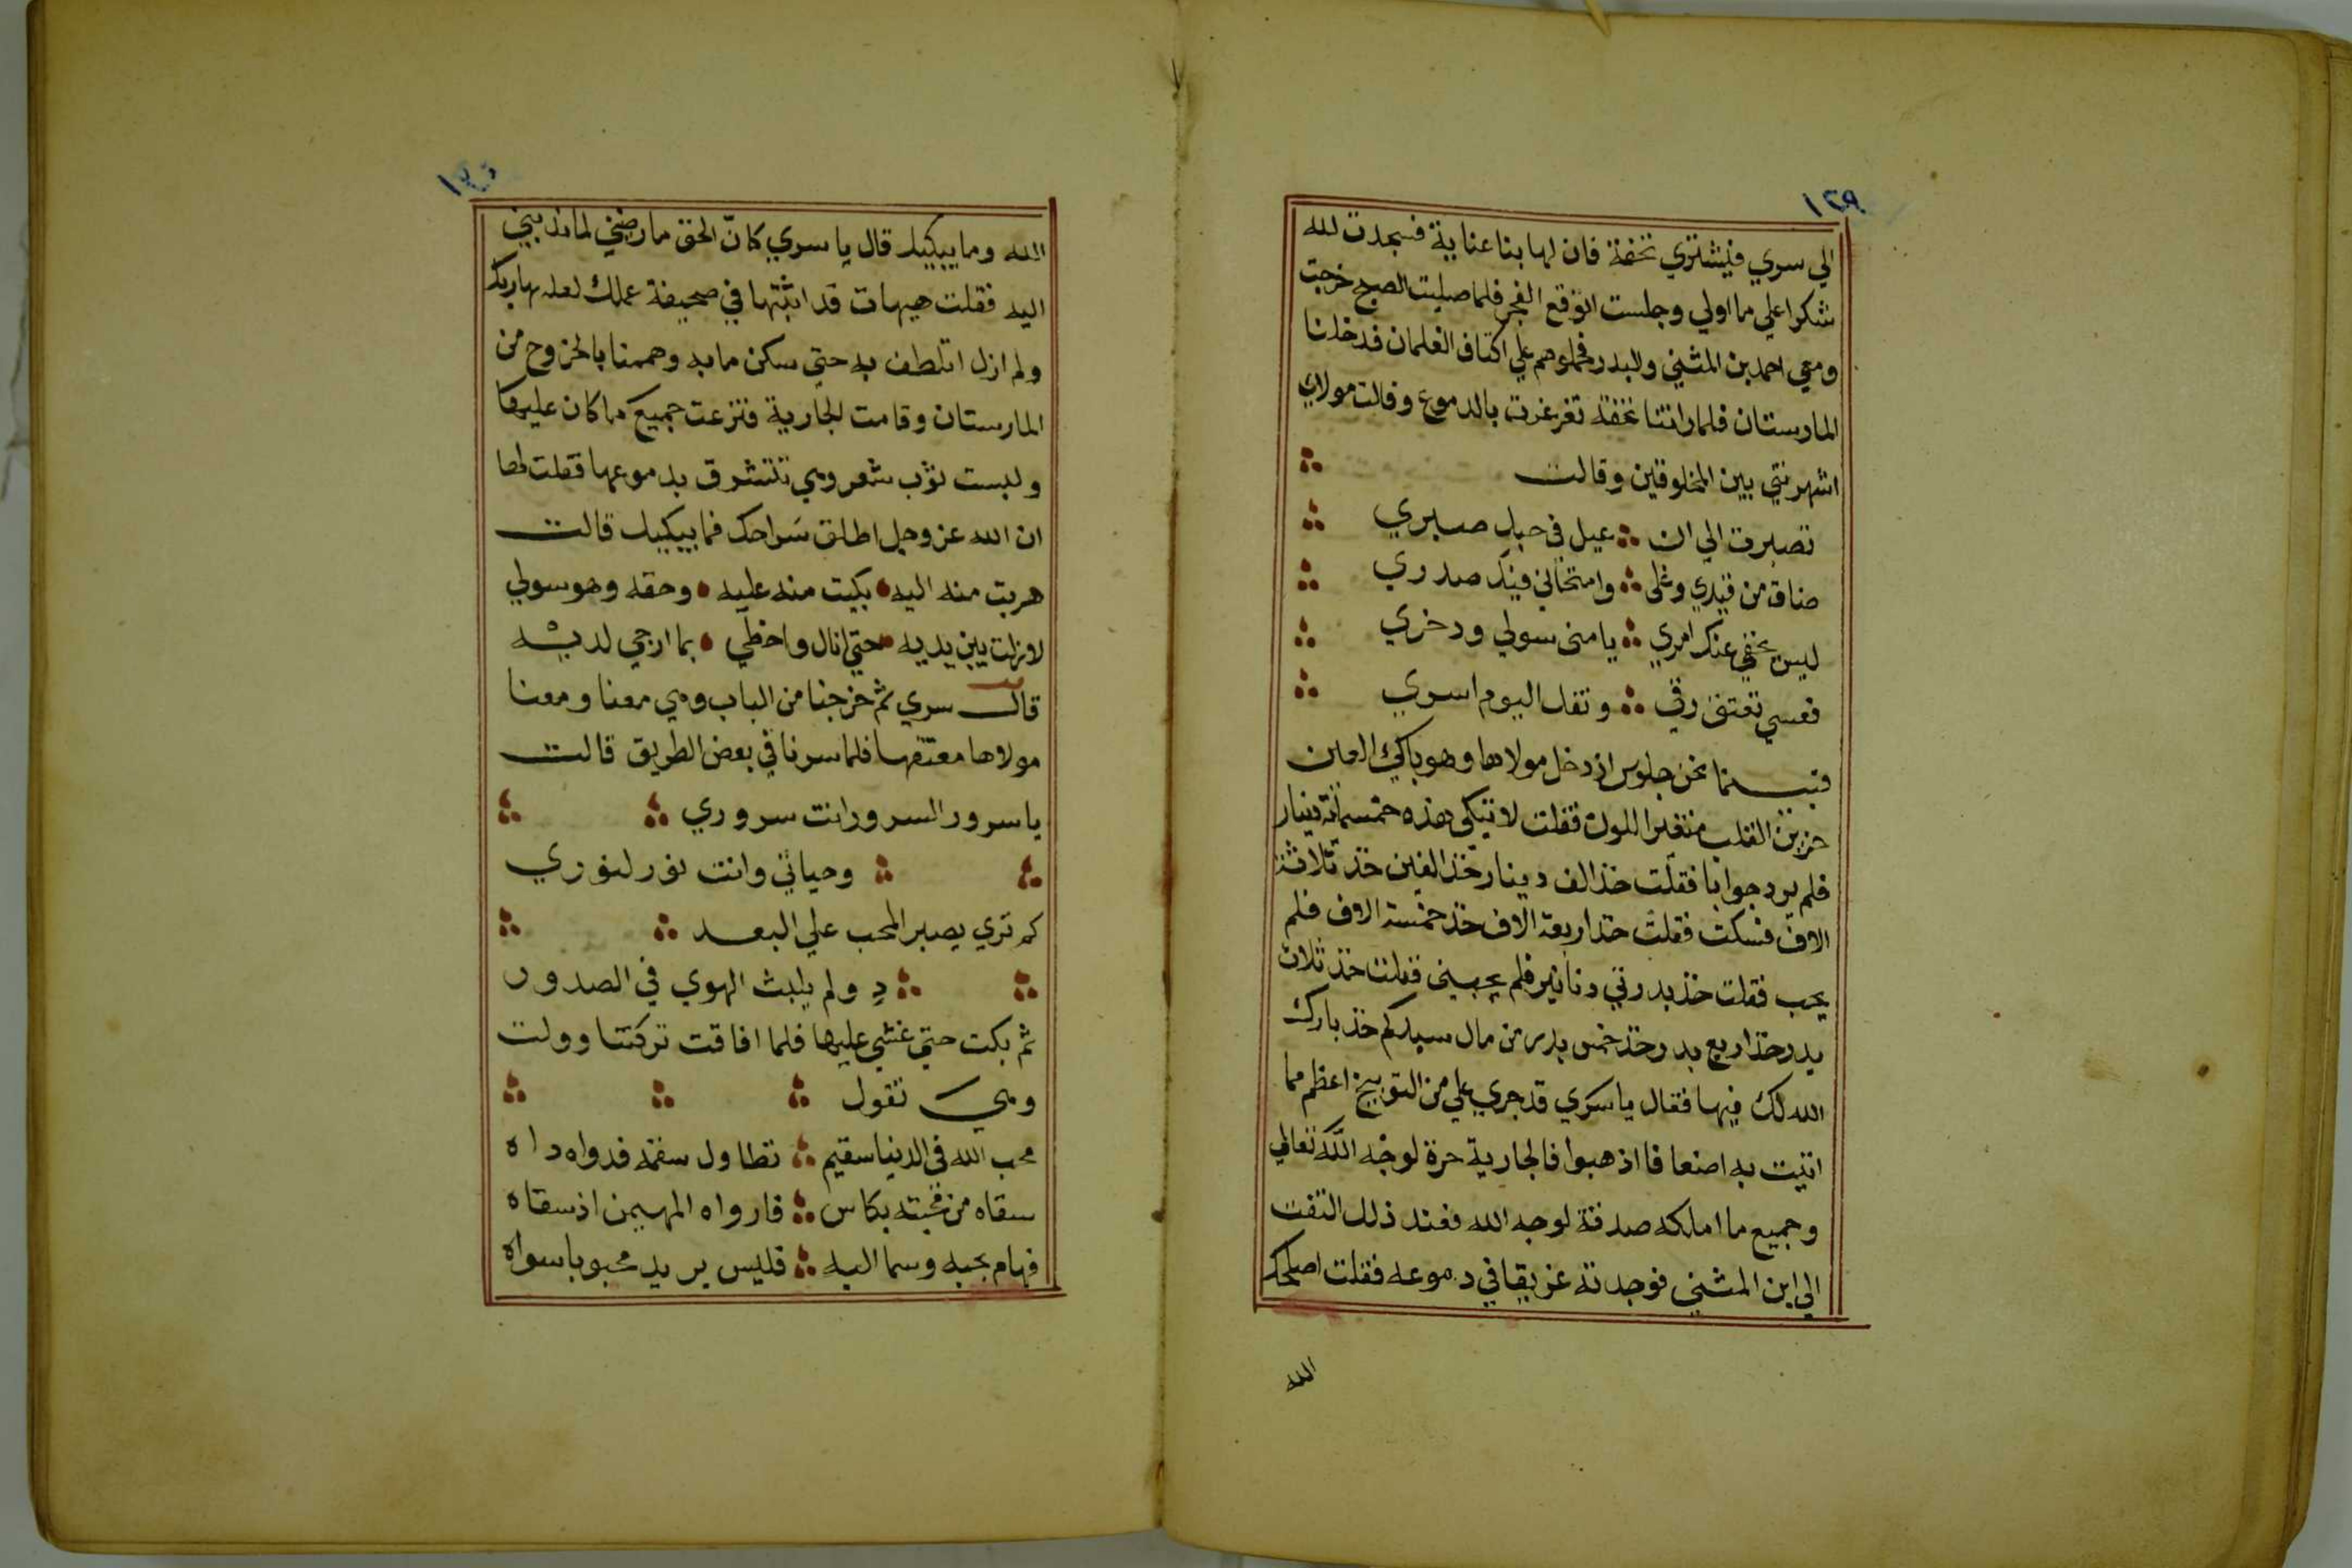 ١٢٩
الي سري فيشتري تحفة فان لها بنا عناية فسجدت لله
شكرا علي ما اولي وجلست اتوقع الفجر فلما صليت الصبح خرجت
ومعي احمد بن المثني والبدر فحملوهم علي اكتاف الغلمان فدخلنا
المارستان فلما راتنا تحفة تغرغرت بالدموع وقالت مولاي
اشهرتني بين المخلوقين وقالت
تصبرت الي ان عيل في حبك صبري
ضاق من قيدي وغلي وامتحاني فيك صدري
ليس يخفي عنك امري يا مني سولي ودخري
فعسي تعتق رقي وتفك اليوم اسري
فبينما نحن جلوس اذ دخل مولاها وهو باكي العين
حزين القلب متغير اللون فقلت لا تبكي هذه خمسمائة دينار
فلم يرد جوابا فقلت خذ الف دينار خذ الفين خذ ثلاثة
الاف فسكت فقلت خذ اربعة الاف خذ خمسة الاف فلم
يجب فقلت خذ بدرتي دنانير فلم يجبني فقلت خذ ثلاث
بدر خذ اربع بدر خذ خمس بدر من مال سيدكم خذ بارك
الله لك فيها فقال يا سري قد جري علي من التوبيخ اعظم مما
اتيت به اضعافا اذهبوا فالجارية حرة لوجه الله تعالي
وجميع ما املكه صدقة لوجه الله فعند ذلك التفت
الي ابن المثني فوجدته غريقا في دموعه فقلت اصلحك
الله
الله وما يبكيك قال يا سري كانّ الحق ما رضيني لما ندبني
اليه فقلت هيهات قد اثبتها في صحيفة عملك لعله بها ربك
ولم ازل اتلطف به حتي سكن ما به وهممنا بالخروج من
المارستان وقامت الجارية فنزعت جميع ما كان عليها
ولبست ثوب شعر وهي تتشرق بدموعها فقلت لها
ان الله عز وجل اطلق سراحك فما يبكيك قالت
هربت منه اليه بكيت منه عليه وحقه وهو سولي
لا زلت بين يديه حتي انال واحظي بما ارجي لديه
قال سري ثم خرجنا من الباب وهي معنا ومعنا
مولاها معتقها فلما سرنا في بعض الطريق قالت
يا سرور السرور انت سروري
وحياتي وانت نور لنوري
كم تري يصبر المحب علي البعـ
د ولم يلبث الهوي في الصدور
ثم بكت حتي غشي عليها فلما افاقت تركتنا وولت
وهي تقول
محب الله في الدنيا سقيم تطاول سقمه فدواه داه
سقاه من محبته بكاس فارواه المهيمن اذ سقاه
فهام بحبه وسما اليه فليس يريد محبوبا سواه